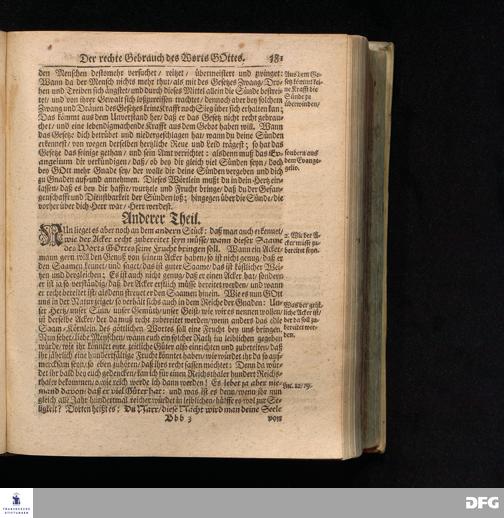 Der rechte Gebrauch des Worts GOttes. 381
den Menschen destomehr versuchet / reitzet / übermeistert und zwinget:
Wann da der Mensch nichts mehr thut / als mit des Gesetzes Zwang / Dro-
hen und Treiben sich ängstet / und durch dieses Mittel allein die Sünde bestrei-
tet / und von ihrer Gewalt sich loßzureissen trachtet / dennoch aber bey solchem
Zwang und Dräuen des Gesetzes keine Krafft noch Sieg über sich erhalten kan;
Das kömmt aus dem Unverstand her / daß er das Gesetz nicht recht gebrau-
chet / und eine lebendigmachende Krafft aus dem Gebot haben will. Wann
das Gesetz dich betrübet und niedergeschlagen hat / wann du deine Sünden
erkennest / von wegen derselben hertzliche Reue und Leid trägest; so hat das
Gesetz das seinige gethan / und sein Amt verrichtet: alsdenn muß das Ev-
angelium dir verkündigen / daß / ob bey dir gleich viel Sünden seyn / doch
bey GOtt mehr Gnade sey / der wolle dir deine Sünden vergeben und dich
zu Gnaden auf- und annehmen. Dieses Wörtlein mußt du in dein Hertz ein-
lassen / daß es bey dir haffte / wurtzele und Frucht bringe / daß du der Gefan-
genschafft und Dienstbarkeit der Sünden loß; hingegen über die Sünde / die
vorher über dich Herr war / Herr werdest.
Aus dem Ge-
setz kömmt kei-
ne Krafft die
Sünde zu
überwinden /
sondern aus
dem Evange-
gelio.
Anderer Theil.
NUn lieget es aber noch an dem andern Stück: daß man auch erkennet /
wie der Acker recht zubereitet seyn müsse / wann dieser Saame
des Worts GOttes seine Frucht bringen soll. Wann ein Acker-
mann gern will den Genuß von seinem Acker haben / so ist nicht genug / daß er
den Saamen kennet / und saget / das ist guter Saame / das ist köstlicher Wei-
tzen und dergleichen; Es ist auch nicht genug / daß er einen Acker hat / sondern
er ist ja so verständig / daß der Acker erstlich müsse bereitet werden / und wann
er recht bereitet ist / alsdenn streuet er den Saamen hinein. Wie es nun GOtt
uns in der Natur zeiget / so verhält sichs auch in dem Reiche der Gnaden: Un-
ser Hertz / unser Sinn / unser Gemüth / unser Geist / wie wir es nennen wollen /
ist derselbe Acker / der da muß recht zubereitet werden / wenn anders das edle
Saam-Körnlein des göttlichen Wortes soll eine Frucht bey uns bringen.
Nun sehet / liebe Menschen / wann euch ein solcher Rath im leiblichen gegeben
würde / wie ihr könntet eure zeitliche Güter also einrichten und zubereiten / daß
ihr jährlich eine hundertfältige Frucht könntet haben / wie würdet ihr da so auf-
mercksam seyn / so eben zuhören / daß ihrs recht fassen möchtet? Denn da wür-
det ihr bald bey euch gedencken / kan ich für einen Reichsthaler hundert Reichs-
thaler bekommen / o wie reich werde ich dann werden! Es lebet ja aber nie-
mand davon / daß er viel Güter hat: und was ist es denn / wenn ihr nun
gleich alle Jahr hundertmal reicher würdet in leiblichen / hülffe es wol zur Se-
ligkeit? Dorten heißt es: Du Narr / diese Nacht wird man deine Seele
2. Wie der A-
cker müsse zu-
bereitet seyn.
Was der geist-
liche Acker ist /
der da soll zu-
bereitet wer-
den.
Luc. 12 / 19.
Bbb 3 von
FRANCKESCHE
STIFTUNGEN
DFG